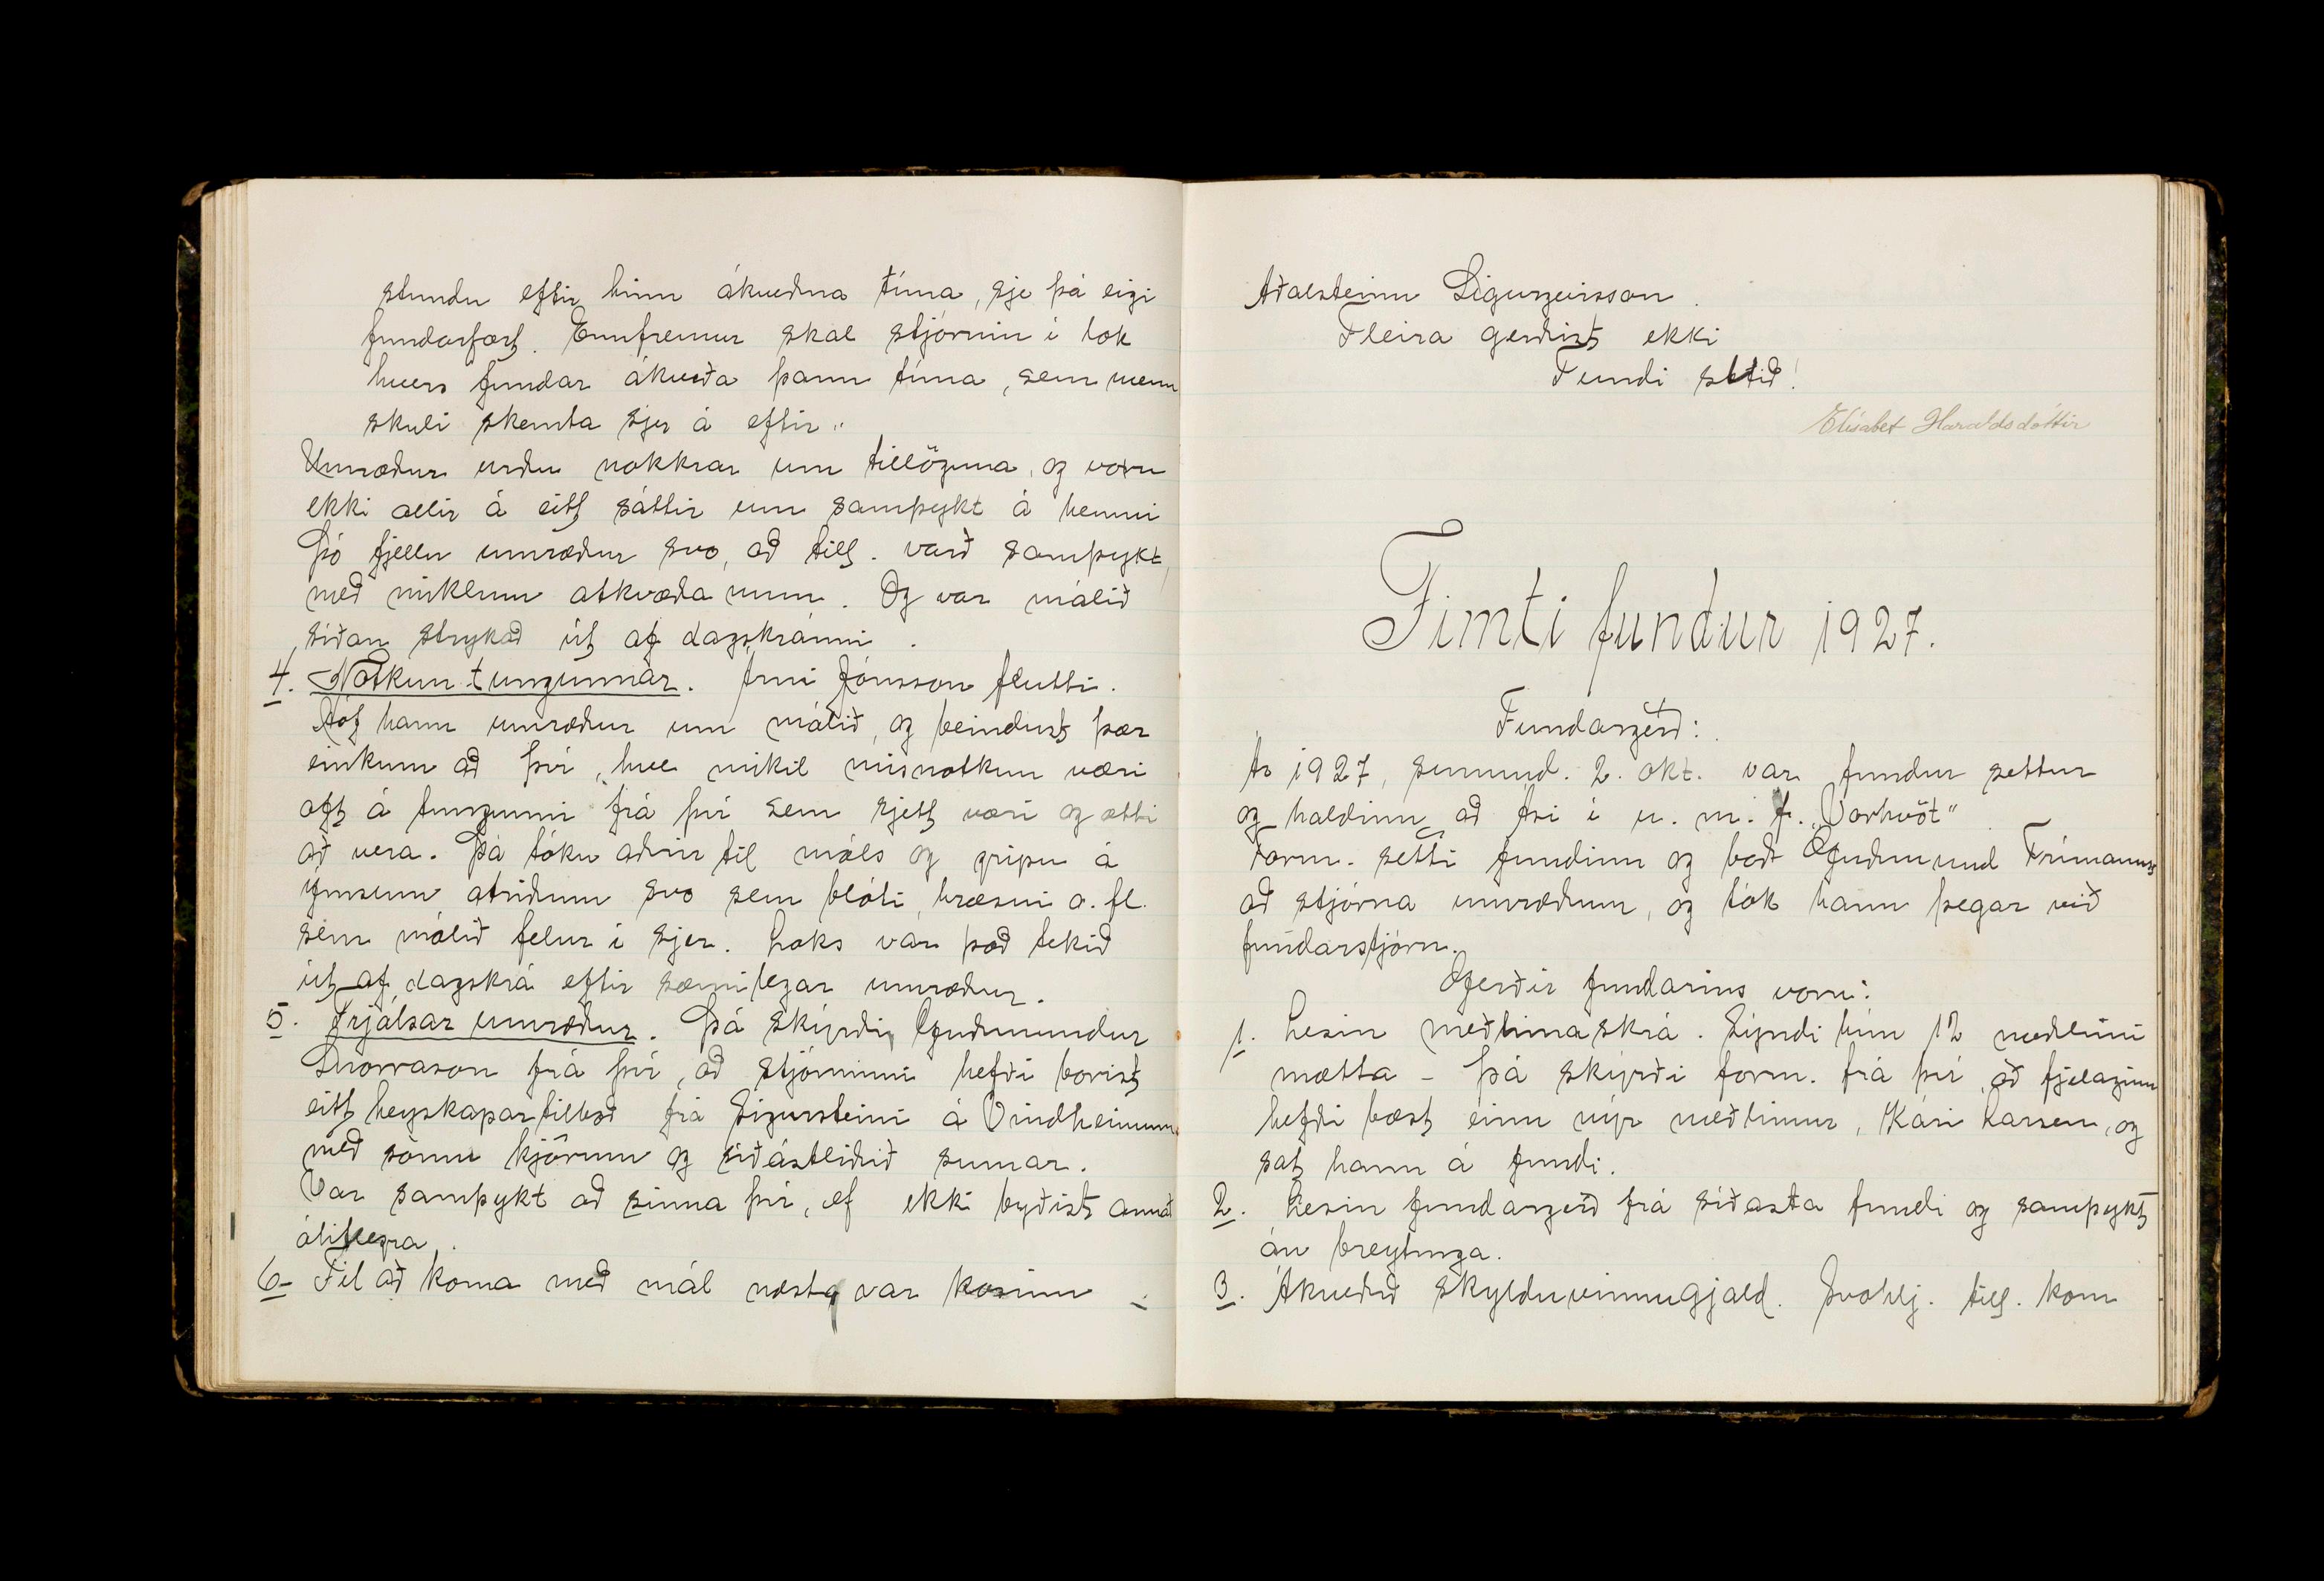 stundu eftir hinn ákveðna tíma, sje þá eigi
fundarfært. Ennfremur skal stjórnin í lok
hvers fundar ákveða þann tíma, sem menn
skuli skemta sjer á eftir"
Umræður urðu nokkrar um tillöguna, og voru
ekki allir á eitt sáttir um samþykt á henni
Þó fjellu umræður svo, að till. varð samþykt,
með miklum atkvæða mun. Og var málið
síðan strykað út af dagskránni.
4. Notkun tungunnar. Árni Jónsson flutti.
Hóf hann umræður um málið, og beindust þær
einkum að því, hve mikil misnotkun væri
oft á tungunni frá því sem rjett væri og ætti
að vera. Þá tóku aðrir til máls og gripu á
ýmsum atriðum svo sem blóti, hræsni o. fl.
sem málið felur í sjer. Loks var það tekið
út af dagskrá eftir sæmilegar umræður.
5. Frjálsar umræður. Þá skýrði Guðmundur
Snorrason frá því, að stjórninni hefði borist
eitt heyskapartilboð frá Sigursteini á Vindheimum
með sömu kjörum og síðastliðið sumar.
Var samþykt að sinna því, ef ekki byðist annað
álitlegra.
6- Til að koma með mál næst var kosinn -
Aðalsteinn Sigurgeirsson.
Fleira gerðist ekki
Fundi slitið!
Elísabet Haraldsdóttir
Fimti fundur 1927.
Fundargerð:
Ár 1927, sunnud. 2. okt. var fundur settur
og haldinn að Ási í u. m. f. „Vorhvöt"
Form. setti fundinn og bað Guðmund Frímanns
að stjórna umræðum, og tók hann þegar við
fundarstjórn.
Gerðir fundarins voru:
1. Lesin meðlimaskrá. Sýndi hún 12 meðlimi
mætta - Þá skýrði form. frá því, að fjelaginu
hefði bæst einn nýr meðlimur, Kári Larsen, og
sat hann á fundi.
2. Lesin fundargerð frá síðasta fundi og samþykt
án breytinga.
3. Ákveðið skylduvinnugjald. Svohlj. till. kom